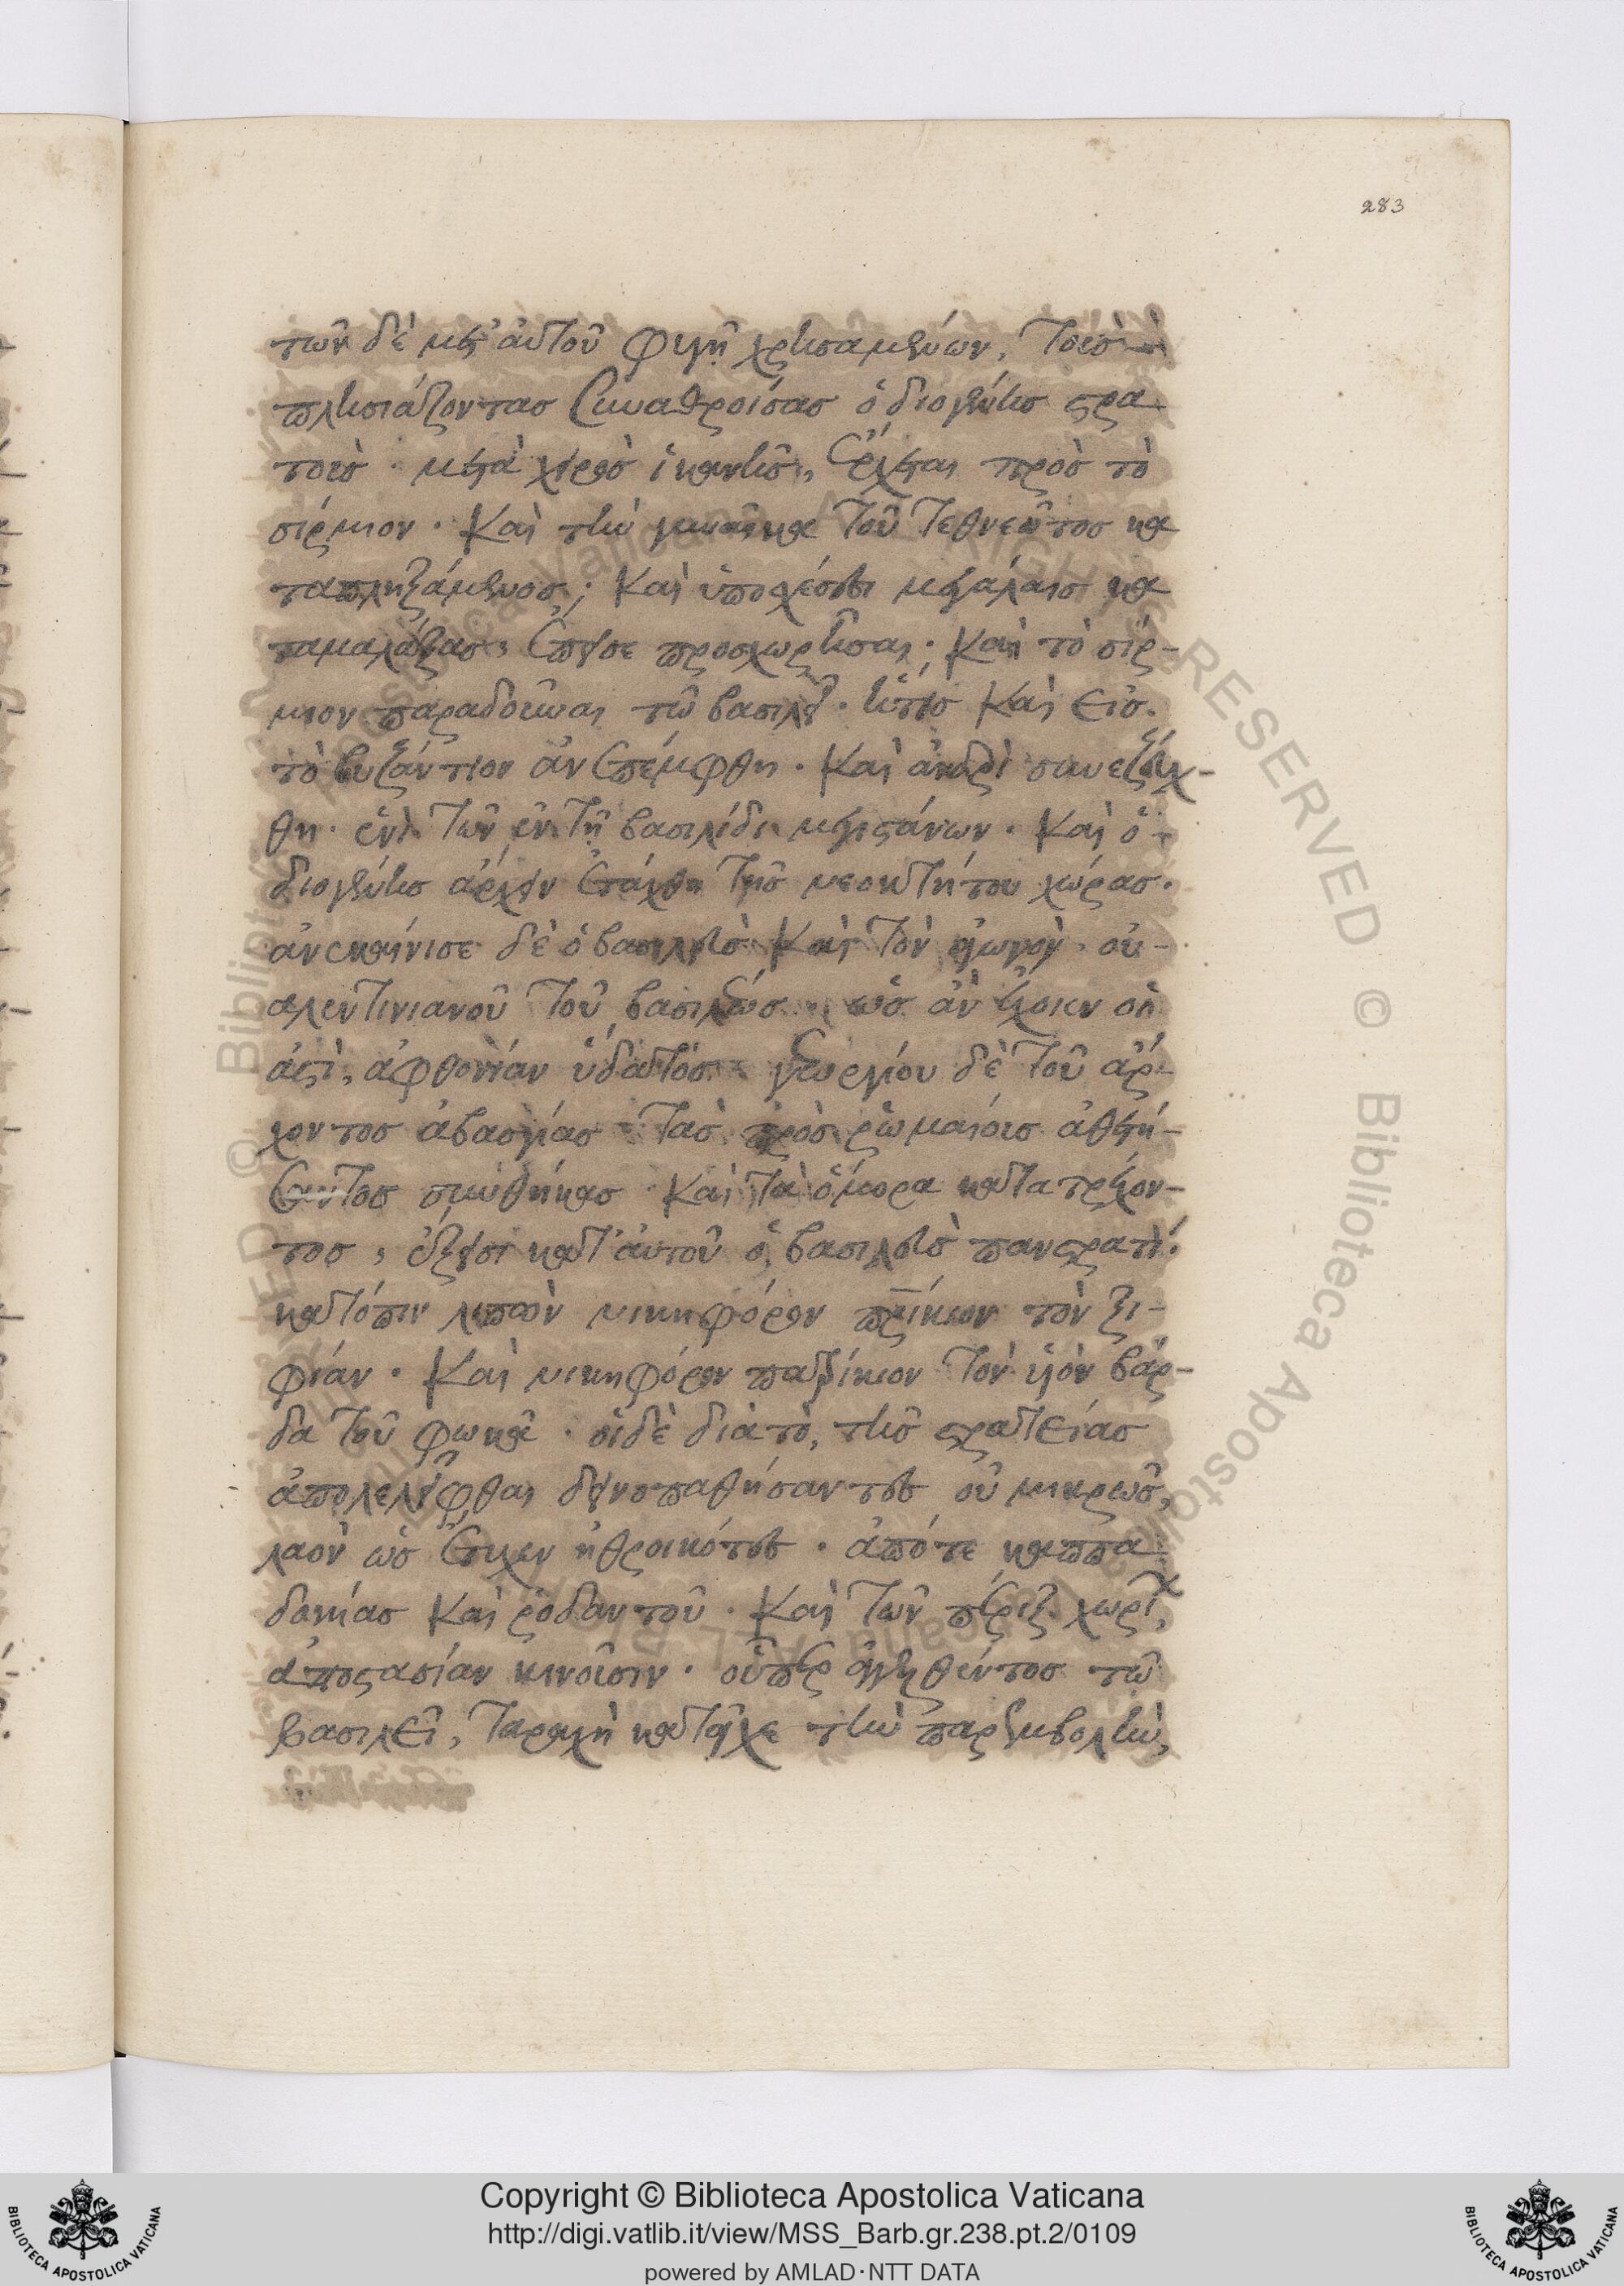 283
τῶν δὲ μετ' αὐτοῦ φυγῇ χρησαμένων, τοὺς
πλησιάζοντας συναθροίσας ὁ διογένης στρα
τοὺς · μετὰ χειρὸς ἱκανῆς, ἔρχεται πρὸς τὸ
σίρμιον · καὶ τὴν γυναῖκα τοῦ τεθνεῶτος κα
ταπληξάμενος, καὶ ὑποσχέσεσι μεγάλαις κα
ταμαλάξας, ἔπεισε προσχωρῆσαι · καὶ τὸ σίρ-
μιον παραδοῦναι τῷ βασιλεῖ · ἥτις καὶ εἰς
τὸ βυζάντιον ἀνεπέμφθη · καὶ ἀνδρὶ συνεζεύχ-
θη · ἑνὶ τῶν ἐν τῇ βασιλίδι μεγιστάνων · καὶ ὁ
διογένης ἄρχειν ἐτάχθη τῆς νεοκτήτου χώρας ·
ἀνεκαίνισε δὲ ὁ βασιλεὺς καὶ τὸν ἀγωγὸν οὐ-
αλεντινιανοῦ τοῦ βασιλέως · ὡς ἂν ἔχοιεν οἱ
ἀστοὶ, ἀφθονίαν ὕδατος · γεωργίου δὲ τοῦ ἄρ-
χοντος ἀβασγίας τὰς πρὸς ῥωμαίους ἀθετή-
σαντος συνθήκας · καὶ τὰ ὅμορα κατατρέχον-
τος, ἔξεισι κατ' αὐτοῦ ὁ βασιλεὺς πανστρατί ·
κατόπιν λιπὼν νικηφόρον πρίκιον τὸν ξι-
φίαν · καὶ νικηφόρον πατρίκιον τὸν υἱὸν βάρ-
δα τοῦ φωκᾶ · οἱ δὲ διὰ τὸ, τῆς στρατείας
ἀπολελεῖφθαι δεινοπαθήσαντες οὐ μικρῶς,
λαὸν ὡς εἶχεν ἠθροικότες · ἀπό τε καππα
δοκίας καὶ ῥοδαντοῦ · καὶ τῶν πέριξ χωρίων,
ἀποστασίαν κινοῦσιν · οὗπερ ἀγγελθέντος τῷ
βασιλεῖ, ταραχὴ κατεῖχε τὴν παρεμβολὴν,
Copyright © Biblioteca Apostolica Vaticana
http://digi.vatlib.it/view/MSS_Barb.gr.238.pt.2/0109
powered by AMLAD·NTT DATA
BIBLIOTECA APOSTOLICA VATICANA
BIBLIOTECA APOSTOLICA VATICANA